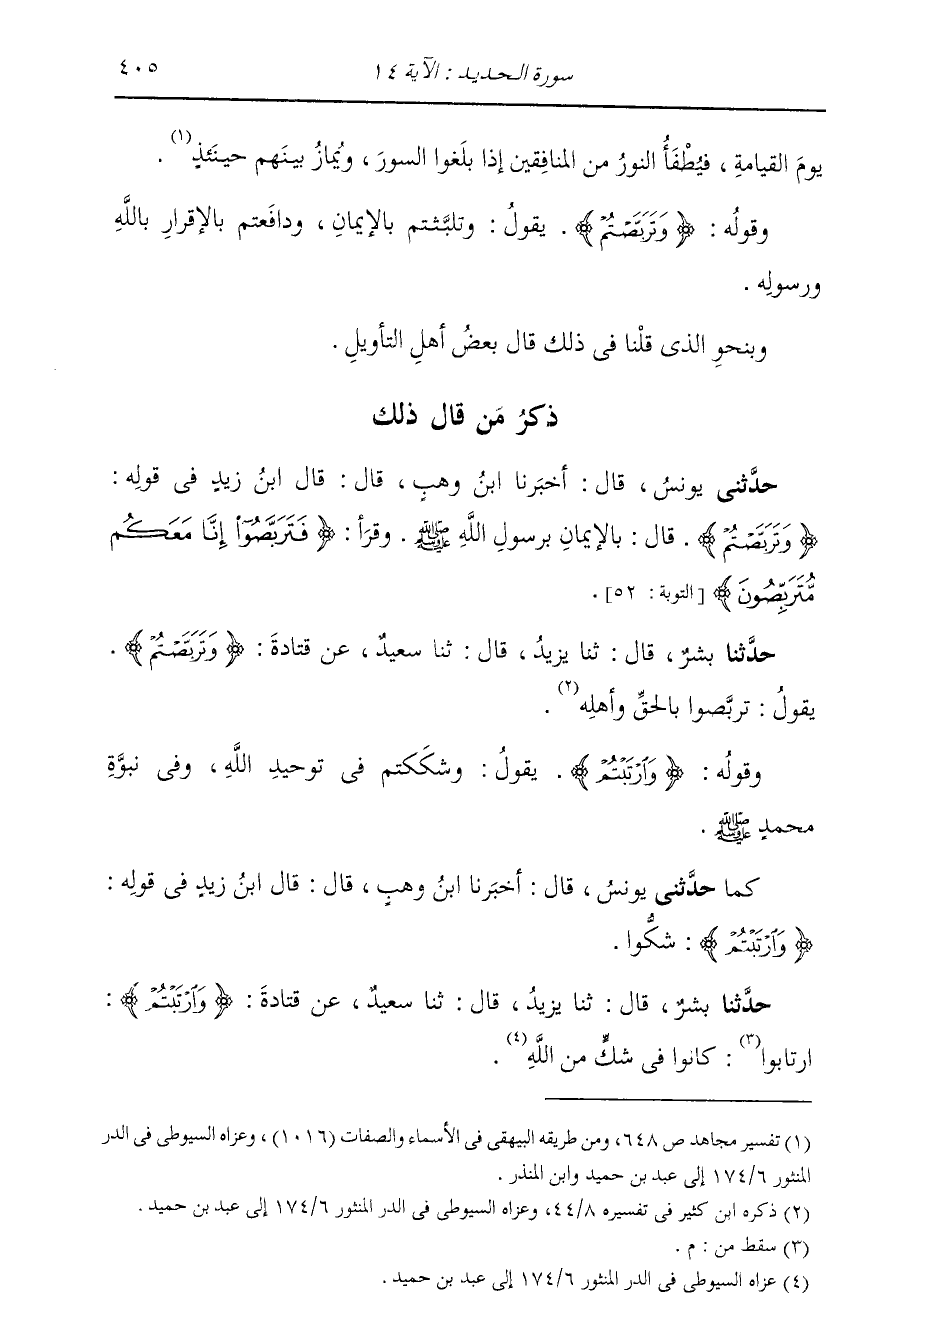 سورة الحديد : الآية ١٤ ٤٠٥
يومَ القيامةِ ، فيُطْفَأُ النورُ من المنافِقين إذا بلَغوا السورَ ، ويُمازُ بينَهم حينَئذٍ(١) .
وقولُه : ﴿ وَتَرَبَّصْتُمْ ﴾ . يقولُ : وتلبَّثتم بالإيمانِ ، ودافَعتم بالإقرارِ باللَّهِ
ورسولِه .
وبنحوِ الذى قلْنا فى ذلك قال بعضُ أهلِ التأويلِ .
ذكرُ مَن قال ذلك
حدَّثنى يونسُ ، قال : أخبَرنا ابنُ وهبٍ ، قال : قال ابنُ زيدٍ فى قولِه :
﴿ وَتَرَبَّصْتُمْ ﴾ . قال : بالإيمانِ برسولِ اللَّهِ ﷺ . وقرَأ : ﴿ فَتَرَبَّصُوٓا۟ إِنَّا مَعَكُم
مُّتَرَبِّصُونَ ﴾ [ التوبة : ٥٢] .
حدَّثنا بشرٌ ، قال : ثنا يزيدُ ، قال : ثنا سعيدٌ ، عن قتادةَ : ﴿ وَتَرَبَّصْتُمْ ﴾ .
يقولُ : تربَّصوا بالحقِّ وأهلِه(٢) .
وقولُه : ﴿ وَٱرْتَبْتُمْ ﴾ . يقولُ : وشكَكتم فى توحيدِ اللَّهِ ، وفى نبوَّةِ
محمدٍ ﷺ .
كما حدَّثنى يونسُ ، قال : أخبَرنا ابنُ وهبٍ ، قال : قال ابنُ زيدٍ فى قولِه :
﴿ وَٱرْتَبْتُمْ ﴾ : شكُّوا .
حدَّثنا بشرٌ ، قال : ثنا يزيدُ ، قال : ثنا سعيدٌ ، عن قتادةَ : ﴿ وَٱرْتَبْتُمْ ﴾ :
ارتابوا(٣) : كانوا فى شكٍّ من اللَّهِ(٤) .
(١) تفسير مجاهد ص ٦٤٨، ومن طريقه البيهقى فى الأسماء والصفات (١٠١٦) ، وعزاه السيوطى فى الدر
المنثور ١٧٤/٦ إلى عبد بن حميد وابن المنذر .
(٢) ذكره ابن كثير فى تفسيره ٤٤/٨، وعزاه السيوطى فى الدر المنثور ١٧٤/٦ إلى عبد بن حميد .
(٣) سقط من : م .
(٤) عزاه السيوطى فى الدر المنثور ١٧٤/٦ إلى عبد بن حميد .